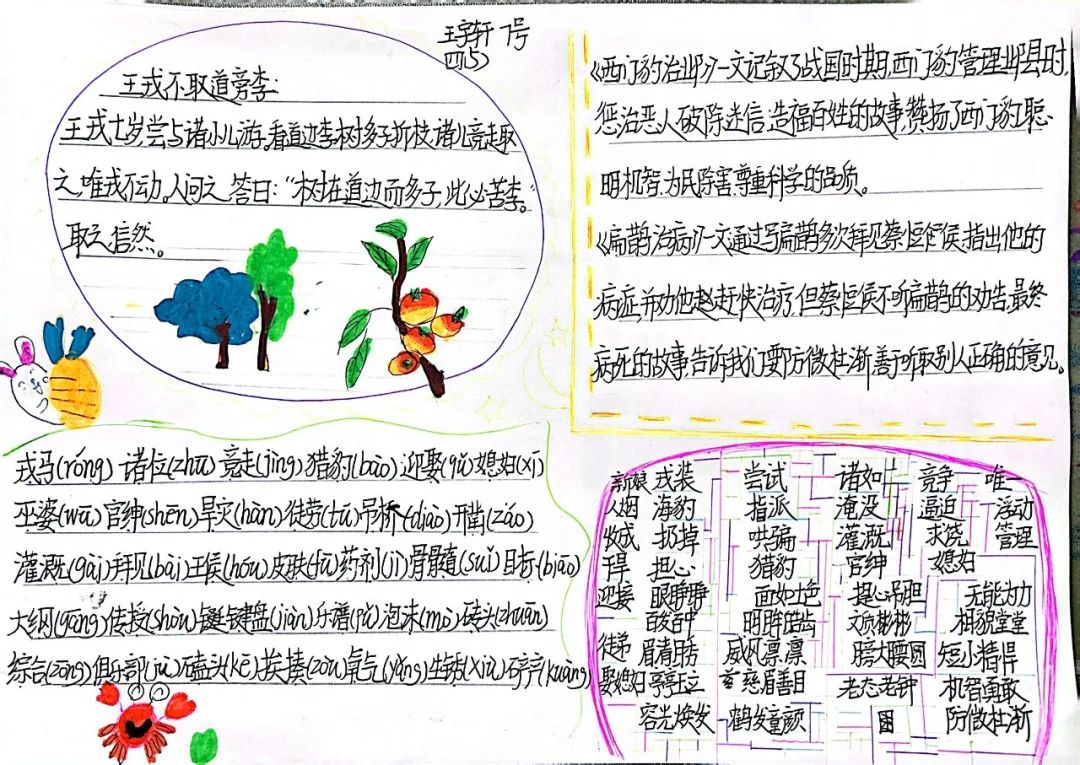 王宇轩 7号
四(5)
王戎不取道旁李:
王戎七岁,尝与诸小儿游。看道边李树多子折枝,诸儿竞走取
之,唯戎不动。人问之,答曰:“树在道边而多子,此必苦李。”
取之,信然。
《西门豹治邺》一文记叙了战国时期,西门豹管理邺县时,
惩治恶人破除迷信,造福百姓的故事,赞扬了西门豹聪
明机智,为民除害尊重科学的品质。
《扁鹊治病》一文通过写扁鹊多次拜见蔡恒侯,指出他的
病症,并劝他赵赶快治疗,但蔡恒侯不听扁鹊的劝告,最终
病死的故事告诉我们要防微杜渐善于听取别人正确的意见。
戎马(róng) 诸位(zhū) 竞走(jìng) 猎豹(bào) 迎娶(qǔ) 媳妇(xí)
巫婆(wū) 官绅(shēn) 旱灾(hàn) 徒劳(tú) 吊桥(diào) 开凿(záo)
灌溉(gài) 拜见(bài) 王侯(hóu) 皮肤(fū) 药剂(jì) 骨髓(suǐ) 目标(biāo)
大纲(gāng) 传授(shòu) 键盘(jiàn) 乐谱(pǔ) 泡沫(mò) 砖头(zhuān)
综合(zōng) 俱乐部(jù) 磕头(kē) 挨揍(zòu) 氧气(yǎng) 生锈(xiù) 矿产(kuàng)
新娘 戎装 尝试 诸如 竞争 唯一
人烟 海豹 指派 淹没 逼迫 浮动
收成 扔掉 哄骗 灌溉 求饶 管理
干旱 担心 猎豹 官绅 媳妇
迎接 眼睁睁 面如土色 提心吊胆 无能为力
明眸皓齿 文质彬彬 相貌堂堂
徒弟 眉清目秀 威风凛凛 膀大腰圆 短小精悍
娶媳妇 亭亭玉立 慈眉善目 老态龙钟 机智勇敢
容光焕发 鹤发童颜 防微杜渐